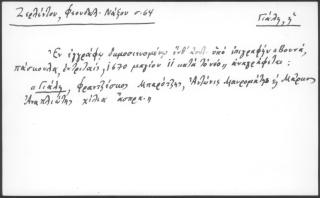 Ζερλέντου, Φεουδαλ. Νάξου σ. 64
Γιάλη, ἡ
Ἐν ἐγγράφῳ δημοσιευομένῳ ὑπὸ ἐπιγραφὴν «Βουνά,
πάσκουλα, 1670 μαγίου 11 κατὰ τὸ νέο» ἀναγράφεται:
«Γιάλη, φραντζέσκος Μπαρότζης, Ἀντώνις Μαυρομάτης Μάρκος
Ἀναπλιώτης χίλια ἄσπρα.»